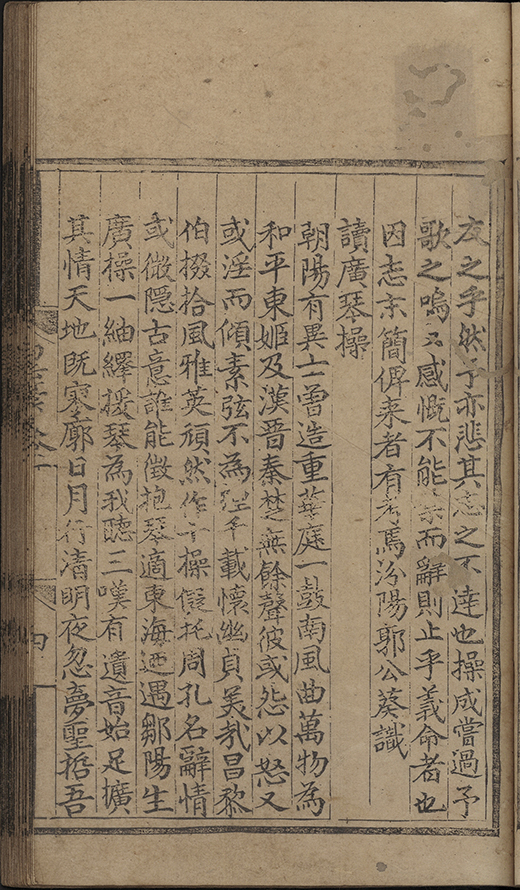 友之乎然予亦悲其志之不達也操成嘗過予
歌之嗚〻感慨不能而辭則止乎義命者也
因志末簡俾来者有考焉汾陽郭公葵識
讀廣琴操
朝陽有異士曽造重華庭一鼓南風曲萬物為
和平東姬及漢晉秦楚無餘聲彼或怨以怒又
或淫而傾素弦不為理年載懷幽貞羙㢤昌黎
伯掇拾風雅英頑然作十操假托周孔名辭情
或微隱古意誰能徵抱琴適東海迺遇鄒陽生
廣操一紬繹援琴為我聽三嘆有遺音始足擴
其情天地既寥廓日月行清明夜忽夢聖哲吾
四